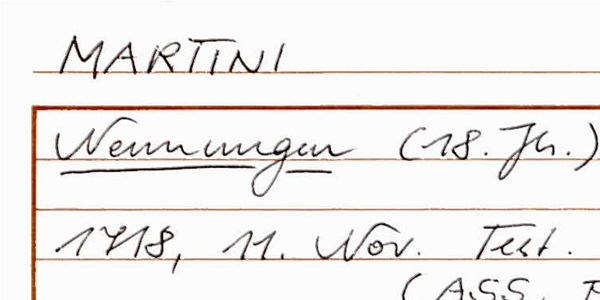 MARTINI
Nennungen (18. Jh.)
1718, 11. Nov. Test.
(ASS.